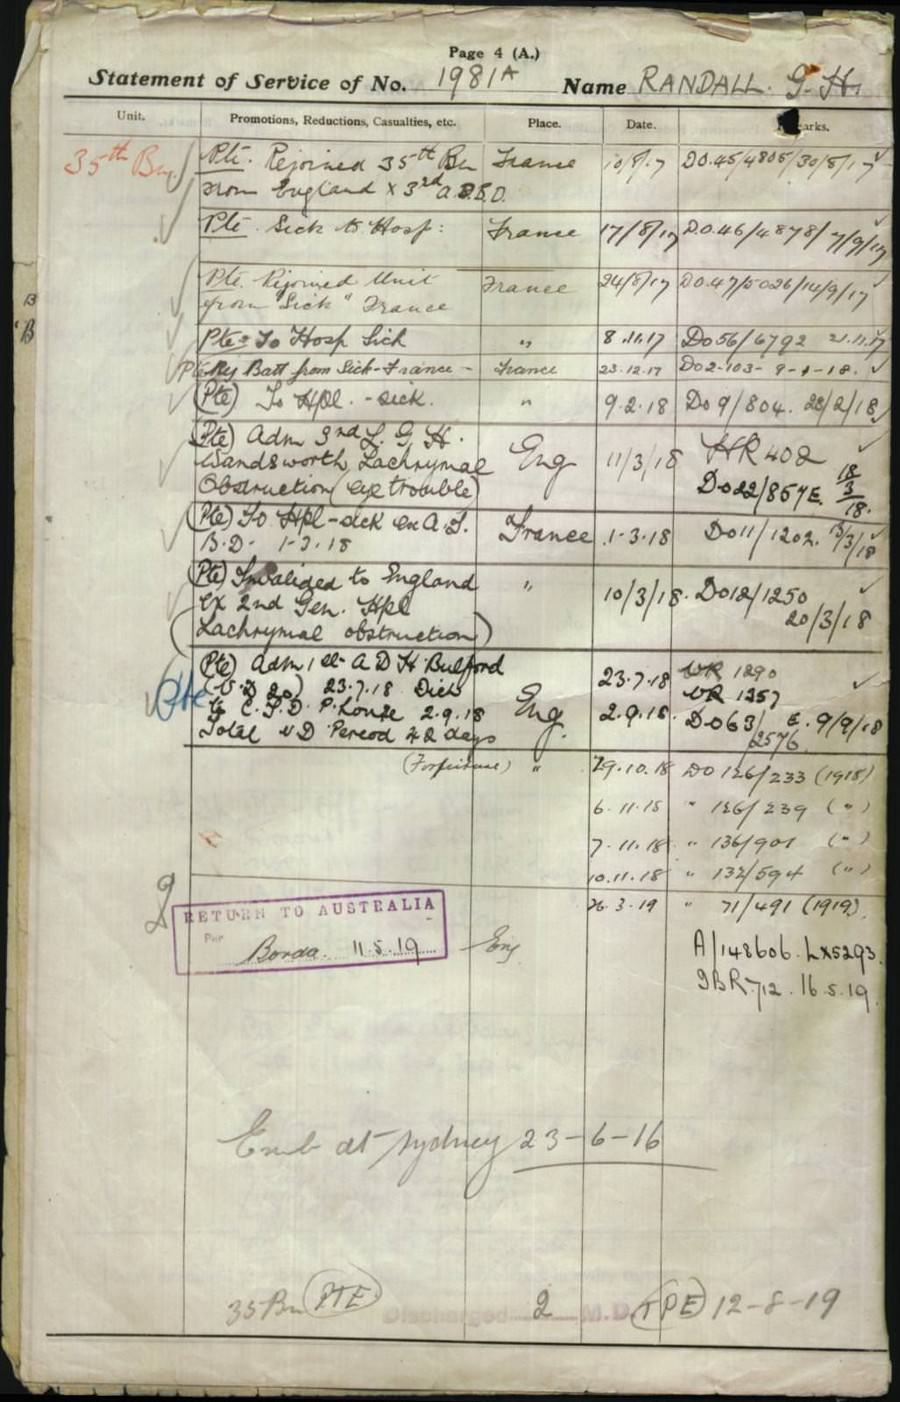 Page 4 (A.)
Statement of Service of No. 1981A Name RANDALL. G. H.
Unit. Promotions, Reductions, Casualties, etc. Place. Date. arks.
35th Bn Pte. Rejoined 35th Bn France 10/8/17 DO.45/4805/30/8/17
from England x 3rd A.D.B.D.
Pte. Sick to Hosp: France 17/8/17 D.O.46/4878/7/9/17
Pte. Rejoined Unit France 24/8/17 DO.47/5026/14/9/17
from "Sick" France
B
'B
Pte = To Hosp Sick " 8.11.17 DO 56/6792 21.11.17
Pte Rej Batt from Sick-France - France 23.12.17 DO 2-103- 9-1-18.
(Pte) To Hpl. - sick. " 9.2.18 DO 9/804. 28/2/18
(Pte) Adm 3rd L. G. H. Eng 11/3/18 HR 402
Wandsworth, Lachrymal
Obstruction (eye trouble) DO22/857E. 18/3/18.
(Pte) To Hpl-sick ex A.I. France 1.3.18 DO11/1202. 13/3/18
B.D. 1-3.18
(Pte) Invalided to England " 10/3/18. DO12/1250
ex 2nd Gen. Hpl 20/3/18
(Lachrymal obstruction)
(Pte) Adm 1st A D H Bulford 23.7.18 VR 1290
Pte (V.D 20) 23.7.18 Disch VR 1357
to C.T.D. P. House 2.9.18 Eng. 2.9.18 DO63/2576 E. 9/9/18
Total V D Period 42 days
(Forfeiture) " 29.10.18 DO 126/233 (1918)
6.11.18 " 126/239 (")
7.11.18 " 136/901 (")
10.11.18 " 132/594 (")
26.3.19 " 71/491 (1919)
RETURN TO AUSTRALIA
Per Borda. 11.5.19 Eng A/148606. LX5293.
IBR 712. 16.5.19
Emb at Sydney 23-6-16
35 Bn (PTE) Discharged 2 M.D. (TPE) 12-8-19